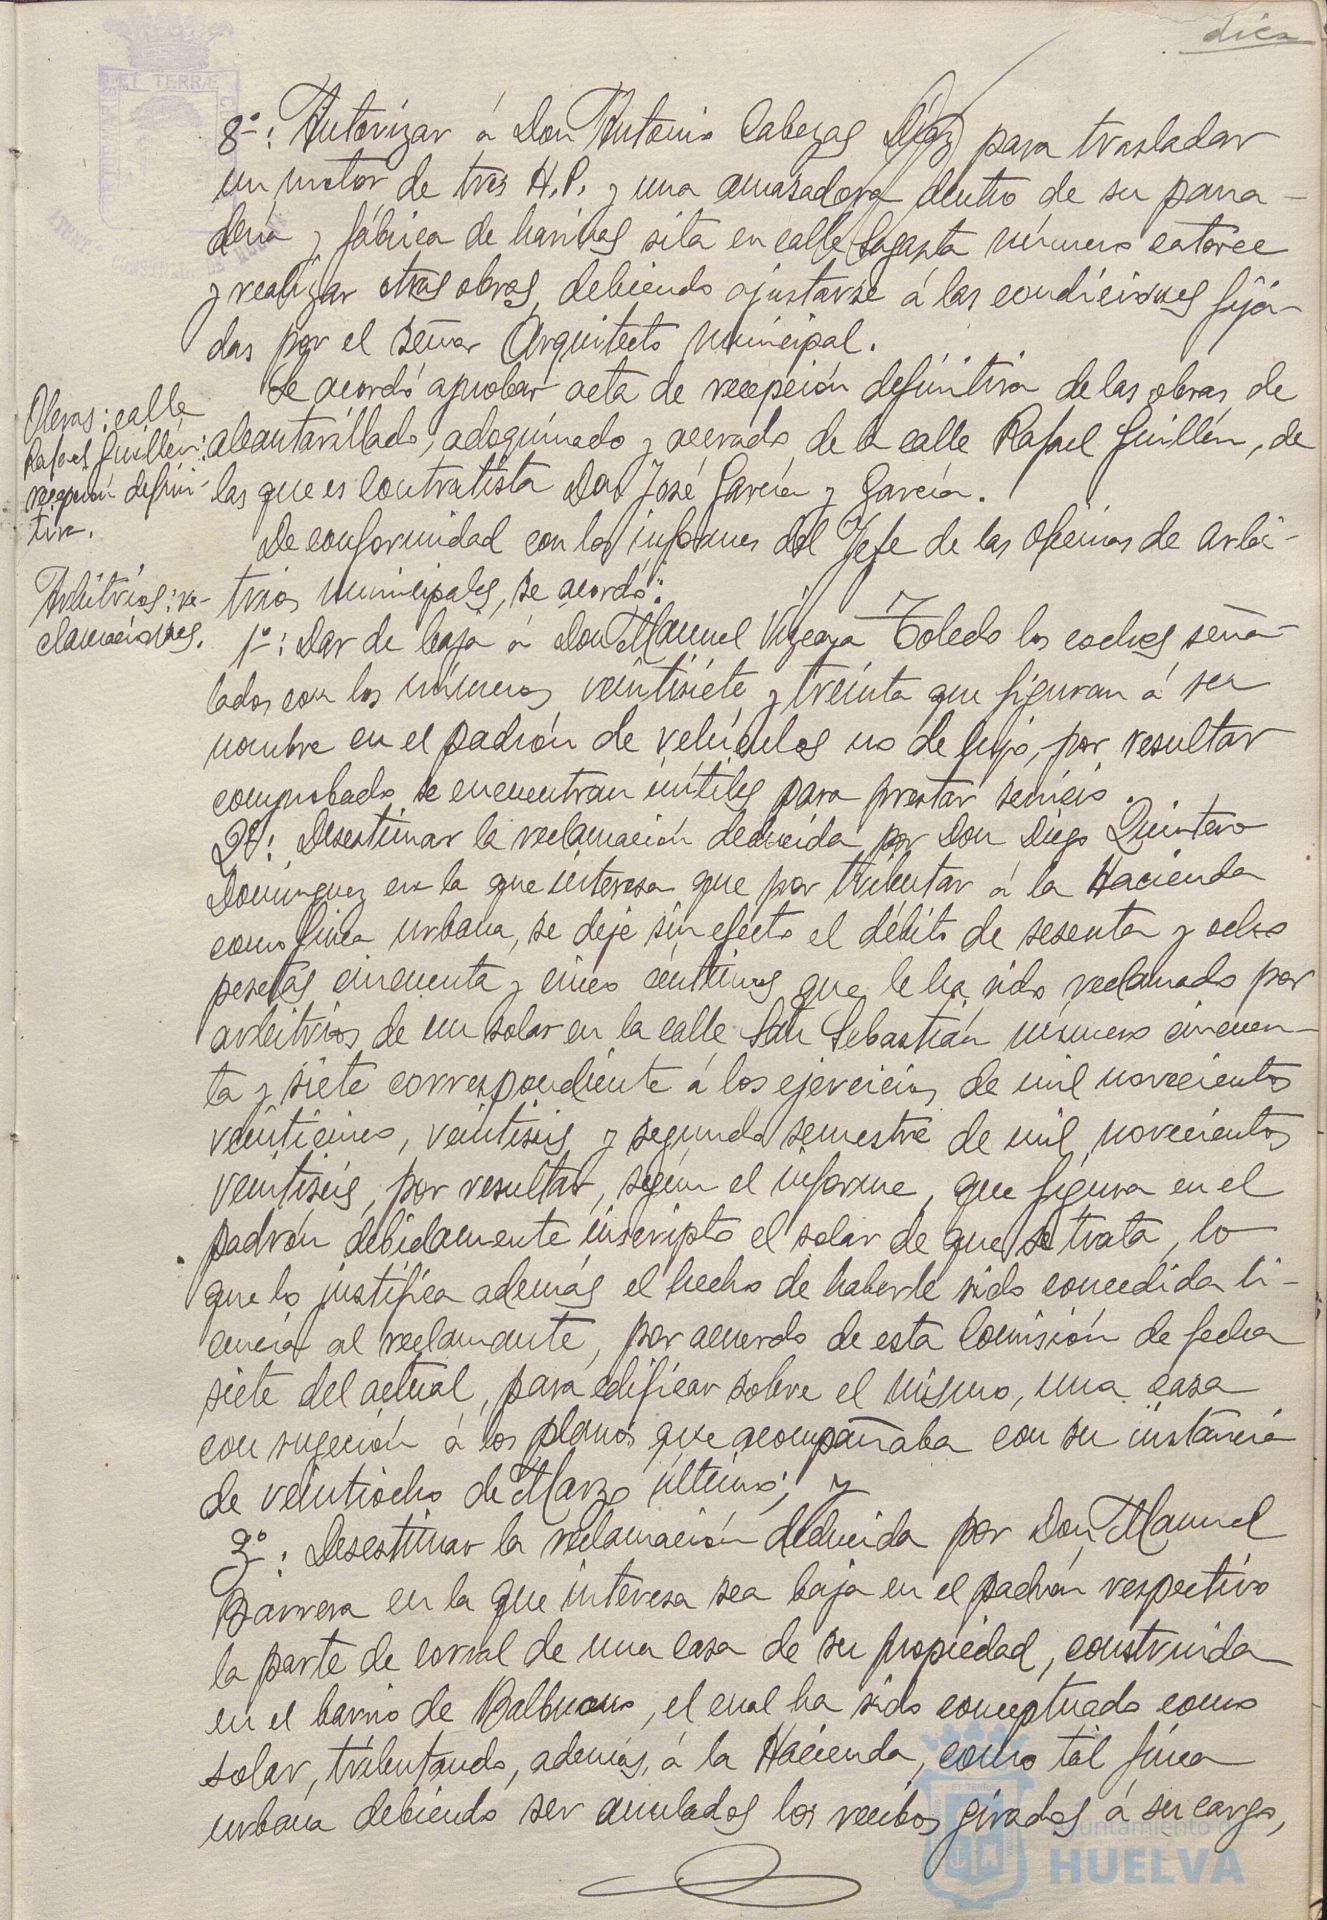 diez
8º: Autorizar á Don Antonio Cabezas Díaz para trasladar
un motor de tres H.P. y una amasadora dentro de su pana-
dería y fábrica de harinas sita en calle Sagasta número catorce
y realizar otras obras, debiendo ajustarse á las condiciones fija-
das por el señor Arquitecto Municipal.
Obras: calle
Rafael Guillén:
recepción defini-
tiva.
Se acordó aprobar acta de recepción definitiva de las obras de
alcantarillado, adoquinado y acerado de la calle Rafael Guillén, de
las que es contratista Don José García y García.
Arbitrios: re-
clamaciones.
De conformidad con los informes del Jefe de las oficinas de arbi-
trios municipales, se acordó:
1º: Dar de baja á Don Manuel Vizcaya Toledo los coches seña-
lados con los números veintisiete y treinta que figuran á su
nombre en el padrón de vehículos no de lujo, por resultar
comprobado se encuentran inútiles para prestar servicio.
2º: Desestimar la reclamación deducida por Don Diego Quintero
Dominguez en la que interesa que por tributar á la Hacienda
como finca urbana, se deje sin efecto el débito de sesenta y ocho
pesetas cincuenta y cinco céntimos que le ha sido reclamado por
arbitrios de un solar en la calle San Sebastián número cincuen-
ta y siete correspondiente á los ejercicios de mil novecientos
veinticinco, veintiseis y segundo semestre de mil novecientos
veintiseis, por resultar, según el informe, que figura en el
padrón debidamente inscripto el solar de que se trata, lo
que lo justifica además el hecho de haberle sido concedida li-
cencia al reclamante, por acuerdo de esta Comisión de fecha
siete del actual, para edificar sobre el mismo, una casa
con sugeción á los planos que acompañaba con su instancia
de veintiocho de Marzo último; y
3º: Desestimar la reclamación deducida por Don Manuel
Barrera en la que interesa sea baja en el padrón respectivo
la parte de corral de una casa de su propiedad, construida
en el barrio de Balbueno, el cual ha sido conceptuado como
solar, tributando, además, á la Hacienda, como tal finca
urbana debiendo ser anulados los recibos girados á su cargo,
Ayuntamiento de
HUELVA